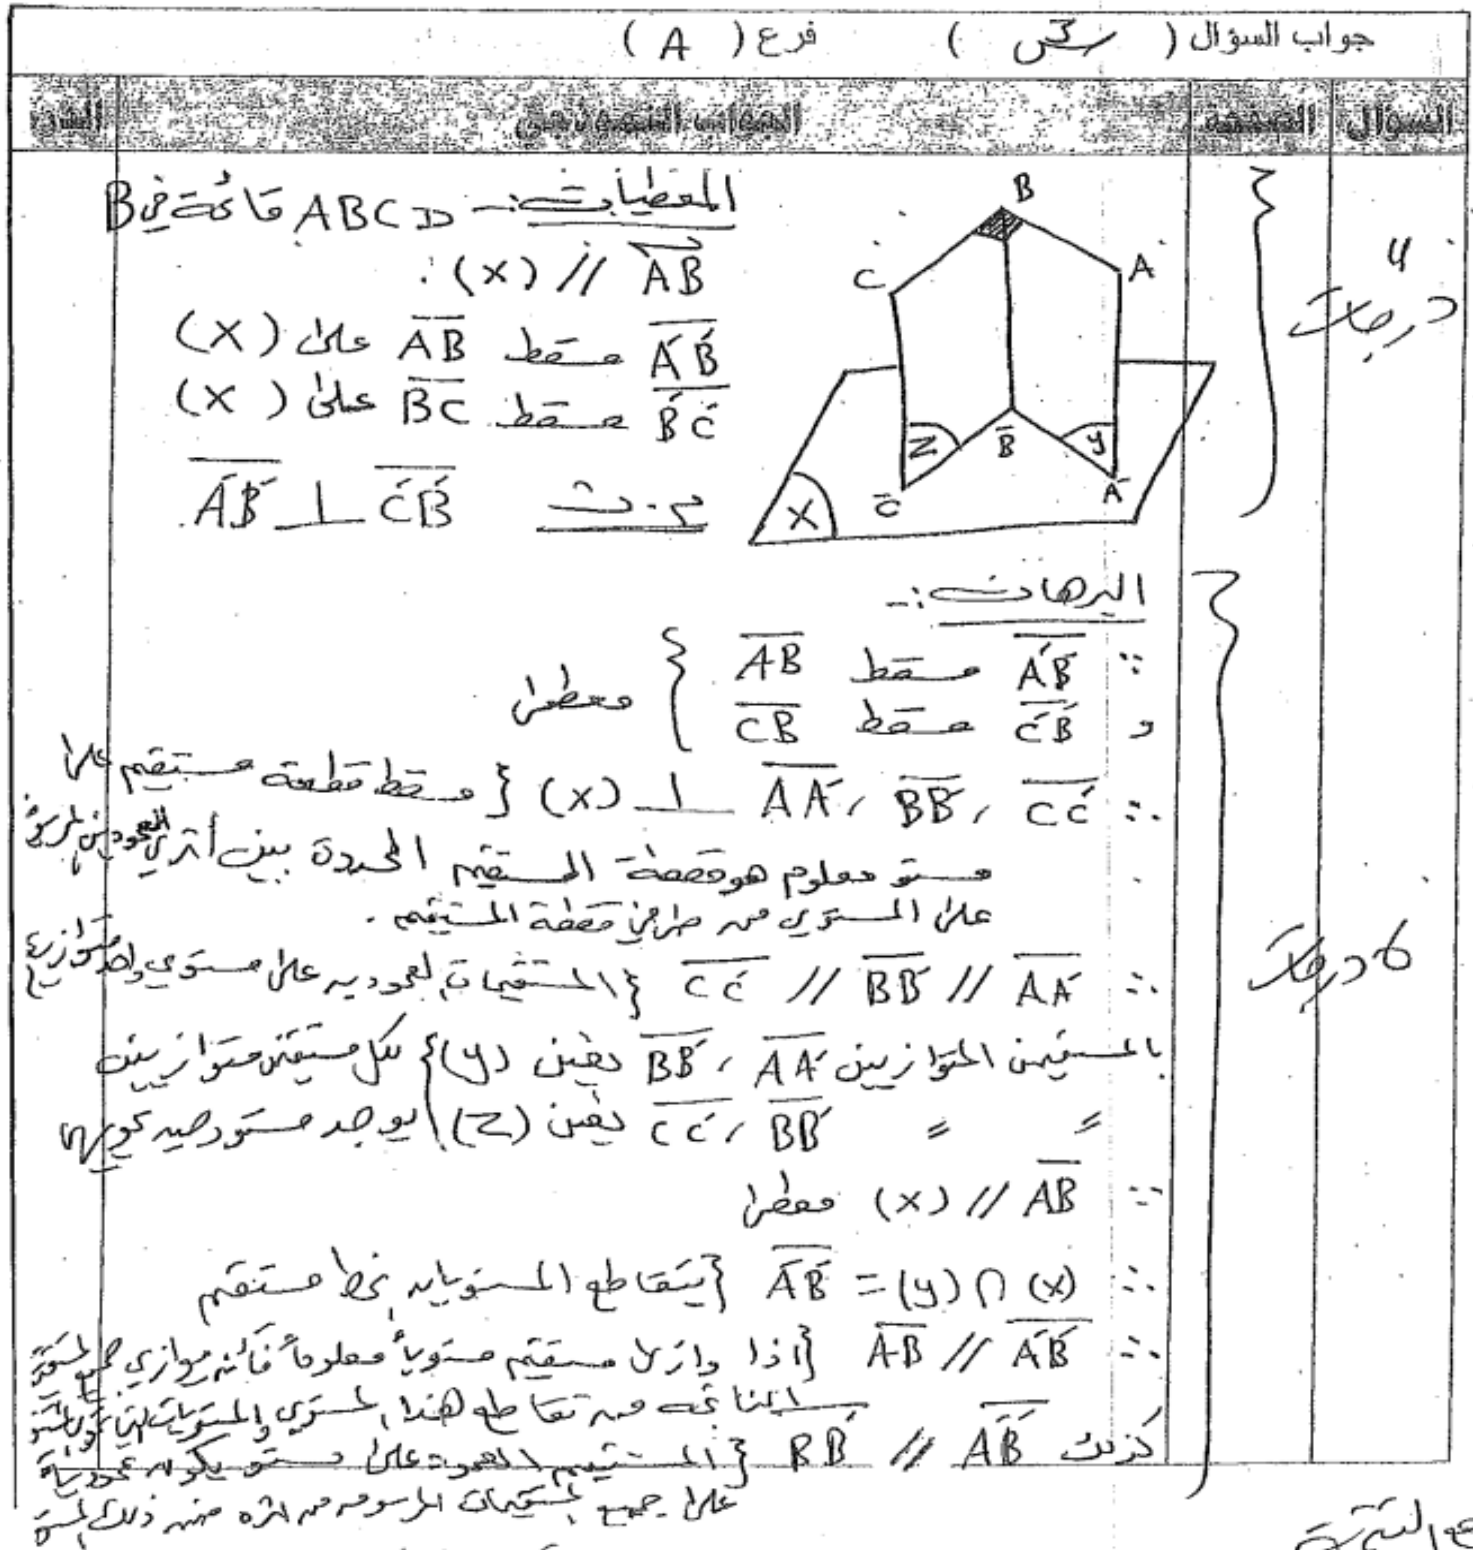 جواب السؤال ( س3 ) فرع ( A )
السؤال الصفحة الجواب النموذجي
المعطيات :- ABC قائمة في B
AB // (X) .
A'B' مسقط AB على (X)
B'C' مسقط BC على (X)
م.ث C'B' ⊥ A'B' .
B
C
A
Z
B'
y
C'
A'
X
4 درجات
البرهان :-
∵ A'B' مسقط AB
و C'B' مسقط CB } معطى
∴ CC' , BB' , AA' ⊥ (X) { مسقط قطعة مستقيم على
مستو معلوم هو قطعة المستقيم المحددة بين أثري العمودين
على المستوي من طرفي قطعة المستقيم .
∴ AA' // BB' // CC' { المستقيمات العمودية على مستوي واحد متوازية
6 درجات
بالمستقيمين المتوازيين AA' , BB' نعين (y) } لكل مستقيمين متوازيين
= = BB' , CC' نعين (Z) } يوجد مستو وحيد يحويهما
∵ AB // (X) معطى
∴ (X) ∩ (y) = A'B' { يتقاطع المستويان بخط مستقيم
∴ A'B' // AB { اذا وازى مستقيم مستوياً معلوماً فأنه يوازي جميع
الناتجة من تقاطع هذا المستوي والمستويات التي
كذلك A'B' // BB' { المستقيم العمود على مستو يكون عمودياً
على جميع المستقيمات المرسومة من اثره ضمن ذلك